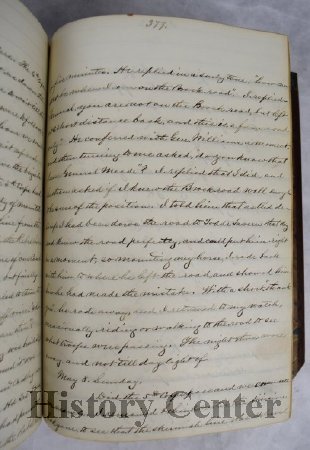 377.
minutes. He replied in a surly tone "I want
to know when I am on the Brock road". I replied
General, you are not on the Brock road, but left
it a short distance back, and this is a farm road
only". He conferred with Gen Williams a moment,
and then turning to me asked, "do you know that
am General Meade"? I replied that I did, and
then asked if I knew the Brock road well enough
to be sure of the position. I told him that as I side
I had been down the road to Todds Tavern that day
and knew the road perfectly, and could put him right
in a moment, so mounting my horse, I rode back
with him to where he left the road and showed him
how he had made the mistake. With a short thank
you, he rode away and I returned to my watch,
nervously riding or walking to the road to see
what troops were passing. The night thus wore
away, and not till day light of
May 8. Sunday,
did the 5th Corps
History Center
to see that the skirmish line